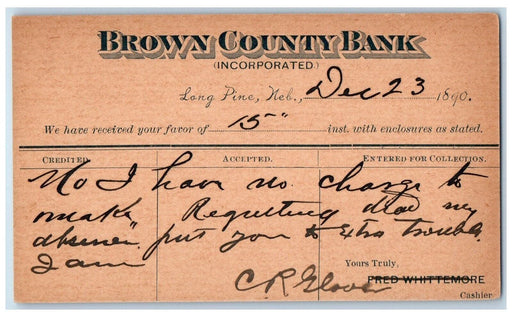 BROWN COUNTY BANK
(INCORPORATED.)
Long Pine, Neb., Dec 23 1890.
We have received your favor of 15" inst. with enclosures as stated.
CREDITED. ACCEPTED. ENTERED FOR COLLECTION.
No I have no charge to
make Regretting that my
absence put you to Extra trouble.
I am
Yours Truly,
C. R. Glover
FRED WHITTEMORE
Cashier